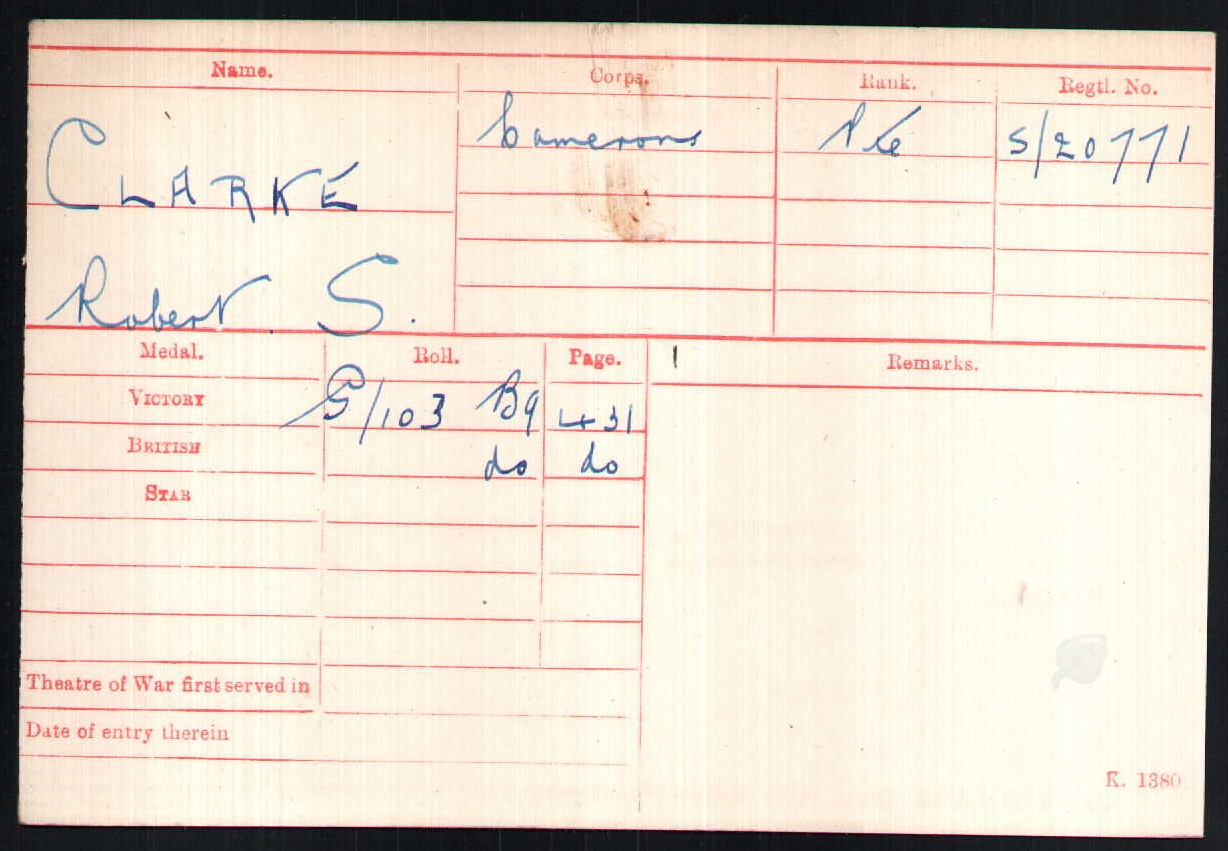 Name. Corps. Rank. Regtl. No.
CLARKE Camerons Pte S/20771
Robert. S.
Medal. Roll. Page. Remarks.
VICTORY G/103 B9 431
BRITISH do do
STAR
Theatre of War first served in
Date of entry therein
K. 1380